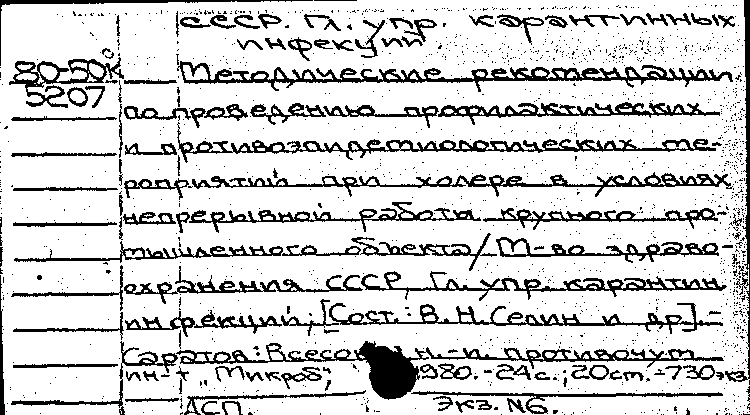 СССР. Гл. упр. карантинных
инфекций.
80-50к
5207
Методические рекомендации
по проведению профилактических
и противоэпидемиологических ме-
роприятий при холере в условиях
непрерывной работы крупного про-
мышленного объекта/М-во здраво-
охранения СССР, Гл. упр. карантин.
инфекций; [Сост.: В.Н.Селин и др.].-
Саратов: Всесоюз. н.-и. противочум.
ин-т "Микроб", 1980.-24с.; 20см.-730экз
АСП. Экз. N6.